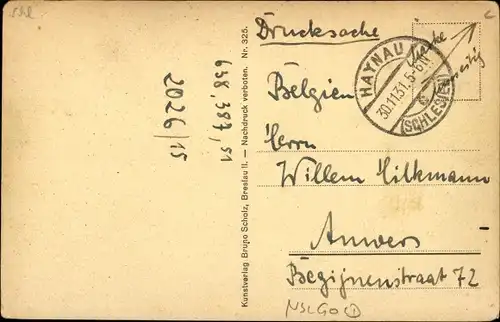 Drucksache
Marke
seitig
HAYNAU
30.11.31.5-6N
c
(SCHLESIEN)
Belgien
Herrn
Willem Hilkmann
Anvers
Begijnenstraat 72
NSLGO ①
Kunstverlag Bruno Scholz, Breslau II. — Nachdruck verboten. Nr. 325.
638,387,51
2026/15